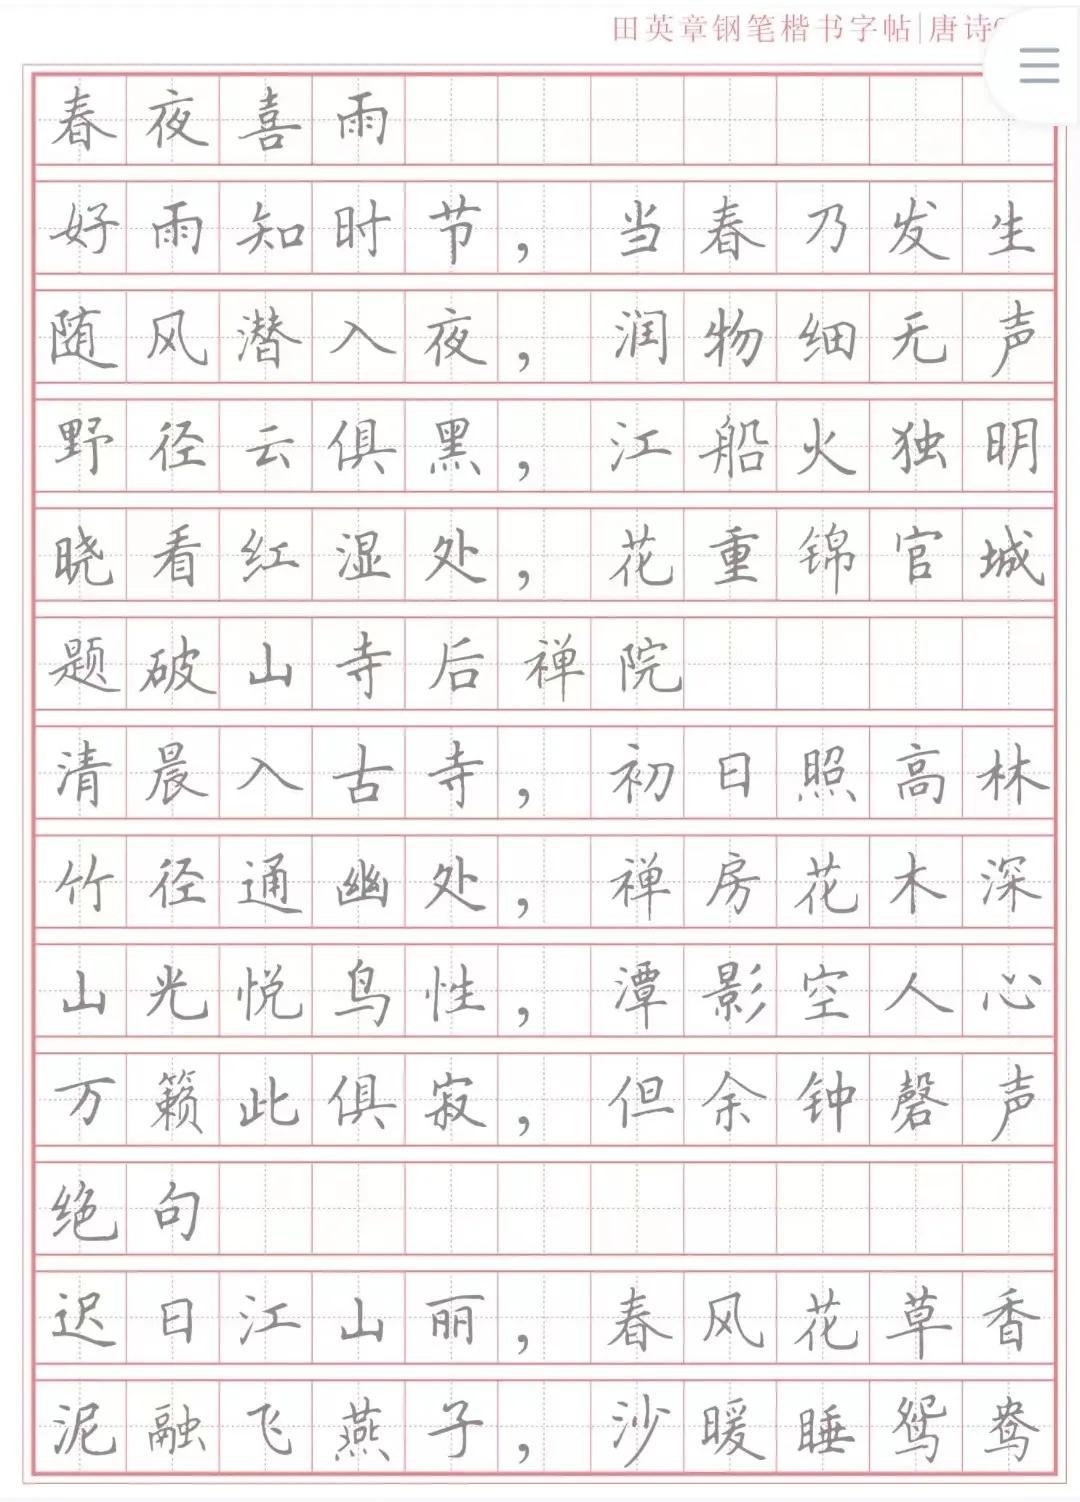 田英章钢笔楷书字帖|唐诗
春夜喜雨
好雨知时节，当春乃发生
随风潜入夜，润物细无声
野径云俱黑，江船火独明
晓看红湿处，花重锦官城
题破山寺后禅院
清晨入古寺，初日照高林
竹径通幽处，禅房花木深
山光悦鸟性，潭影空人心
万籁此俱寂，但余钟磬声
绝句
迟日江山丽，春风花草香
泥融飞燕子，沙暖睡鸳鸯